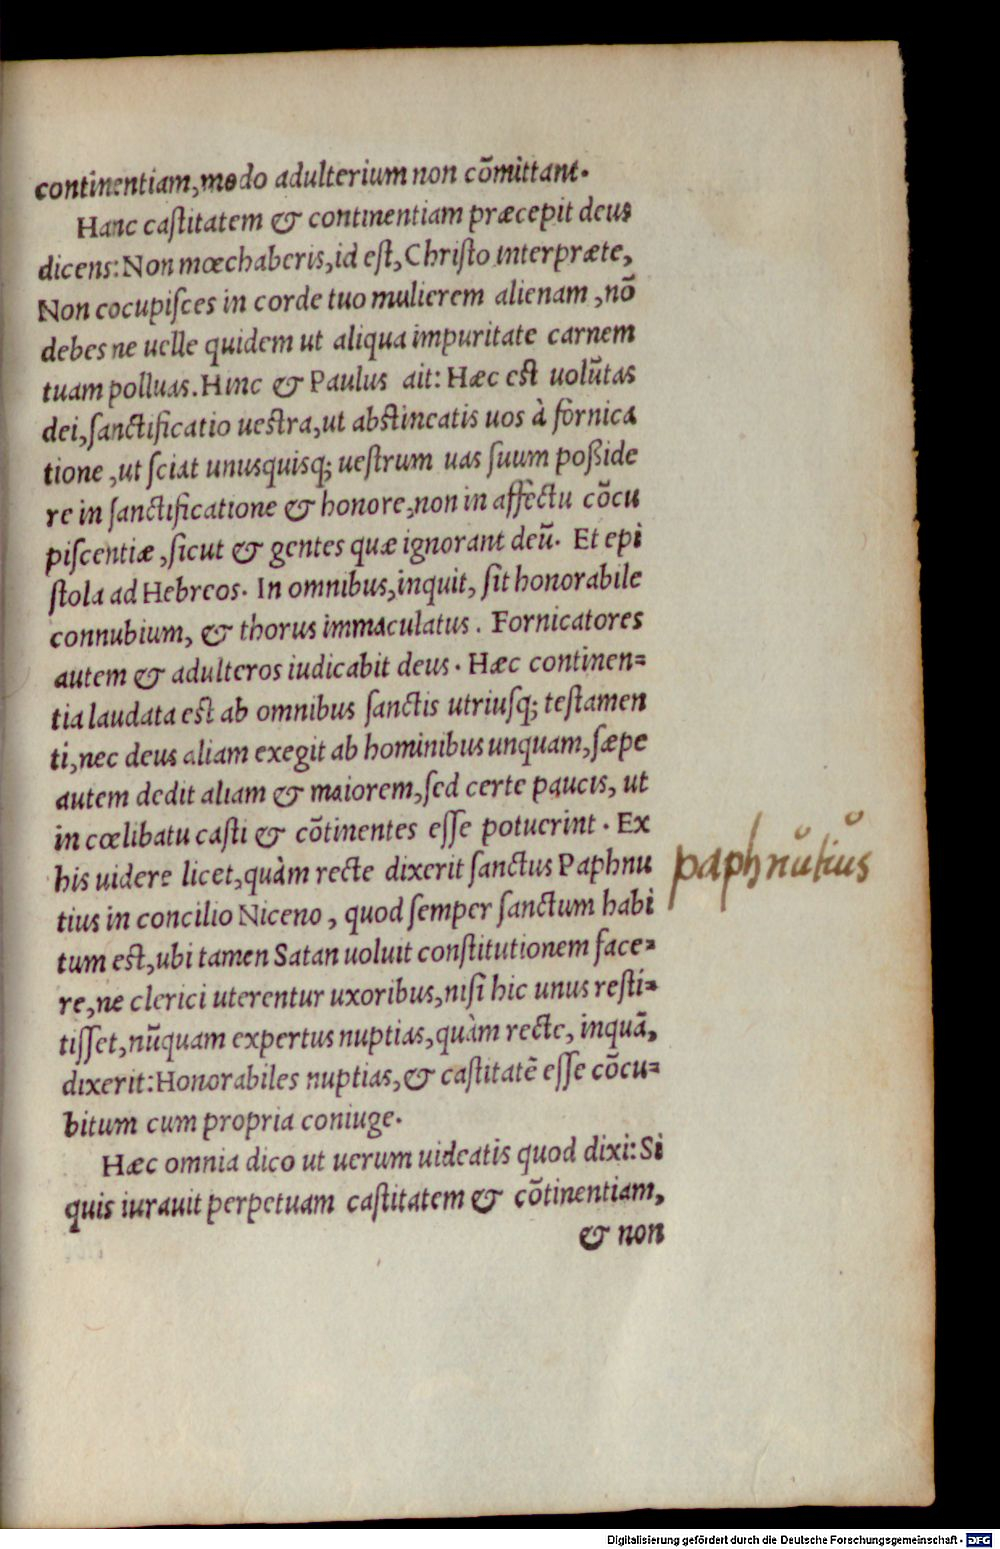 continentiam,modo adulterium non cõmittant.
Hanc caſtitatem & continentiam præcepit deus
dicens: Non mœchaberis, id eſt, Chriſto interpræte,
Non cocupiſces in corde tuo mulierem alienam, nõ
debes ne uelle quidem ut aliqua impuritate carnem
tuam polluas. Hinc & Paulus ait: Hæc eſt uolũtas
dei, ſanctificatio ueſtra, ut abſtineatis uos à fornica
tione, ut ſciat unusquisq; ueſtrum uas ſuum poßide
re in ſanctificatione & honore, non in affectu cõcu
piſcentiæ, ſicut & gentes quæ ignorant deũ. Et epi
ſtola ad Hebreos. In omnibus, inquit, ſit honorabile
connubium, & thorus immaculatus. Fornicatores
autem & adulteros iudicabit deus. Hæc continen=
tia laudata eſt ab omnibus ſanctis utriuſq; teſtamen
ti, nec deus aliam exegit ab hominibus unquam, ſæpe
autem dedit aliam & maiorem, ſed certe paucis, ut
in cœlibatu caſti & cõtinentes eſſe potuerint. Ex
his uidere licet, quàm recte dixerit ſanctus Paphnu
paphnutius
tius in concilio Niceno, quod ſemper ſanctum habi
tum eſt, ubi tamen Satan uoluit conſtitutionem face=
re, ne clerici uterentur uxoribus, niſi hic unus reſti=
tiſſet, nũquam expertus nuptias, quàm recte, inquã,
dixerit: Honorabiles nuptias, & caſtitatẽ eſſe cõcu=
bitum cum propria coniuge.
Hæc omnia dico ut uerum uideatis quod dixi: Si
quis iurauit perpetuam caſtitatem & cõtinentiam,
& non
Digitalisierung gefördert durch die Deutsche Forschungsgemeinschaft - DFG